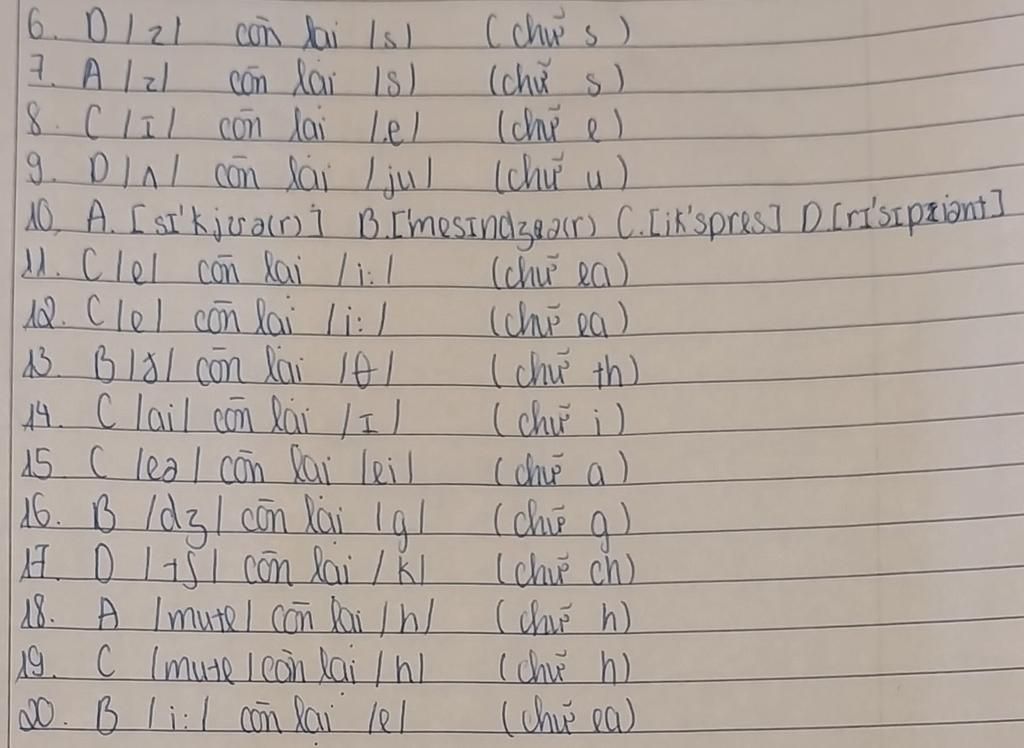 6. D /z/ còn lại /s/ (chữ s)
7. A /z/ còn lại /s/ (chữ s)
8. C /ɪ/ còn lại /e/ (chữ e)
9. D /ʌ/ còn lại /ju/ (chữ u)
10. A. [sɪ'kjʊə(r)] B. ['mesɪndʒə(r) C. [ik'spres] D. [rɪ'sɪpiənt]
11. C /e/ còn lại /i:/ (chữ ea)
12. C /e/ còn lại /i:/ (chữ ea)
13. B /ð/ còn lại /θ/ (chữ th)
14. C /ai/ còn lại /ɪ/ (chữ i)
15 C /eə/ còn lại /ei/ (chữ a)
16. B /dʒ/ còn lại /g/ (chữ g)
17. D /tʃ/ còn lại /k/ (chữ ch)
18. A /mute/ còn lại /h/ (chữ h)
19. C /mute/ còn lại /h/ (chữ h)
20. B /i:/ còn lại /e/ (chữ ea)